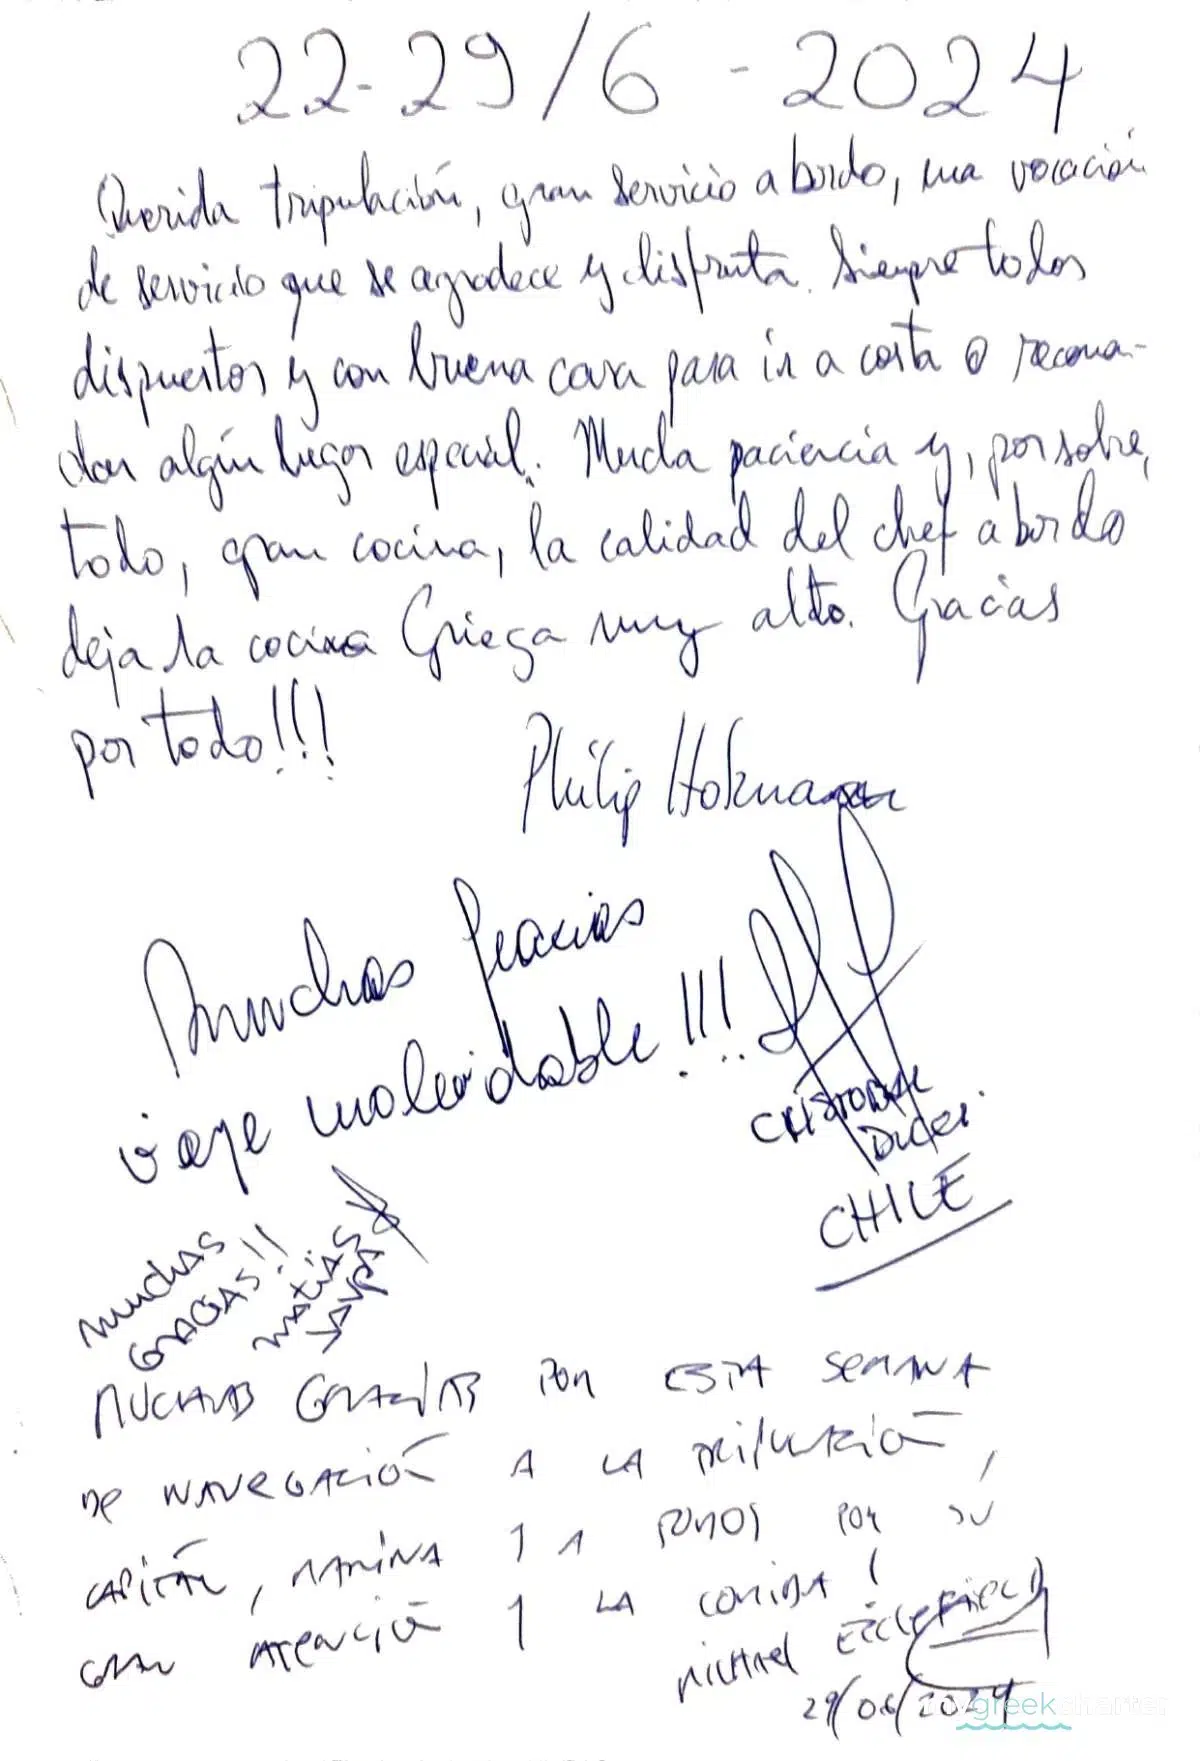 22-29/6 - 2024
Querida tripulación, gran servicio a bordo, una vocación
de servicio que se agradece y disfruta. Siempre todos
dispuestos y con buena cara para ir a costa o recomen-
dar algún lugar especial. Mucha paciencia y, por sobre
todo, gran cocina, la calidad del chef a bordo
deja la cocina Griega muy alto. Gracias
por todo!!!
Philip
Muchas gracias
viaje inolvidable!!!
CRISTOBAL
CHILE
MUCHAS
GRACIAS!!
MATIAS
MUCHAS GRACIAS POR ESTA SEMANA
DE NAVEGACIÓN A LA TRIPULACIÓN,
CAPITÁN, MARINA Y A TODOS POR SU
GRAN ATENCIÓN Y LA COMIDA!
MICHAEL
29/06/2024
greekcharter